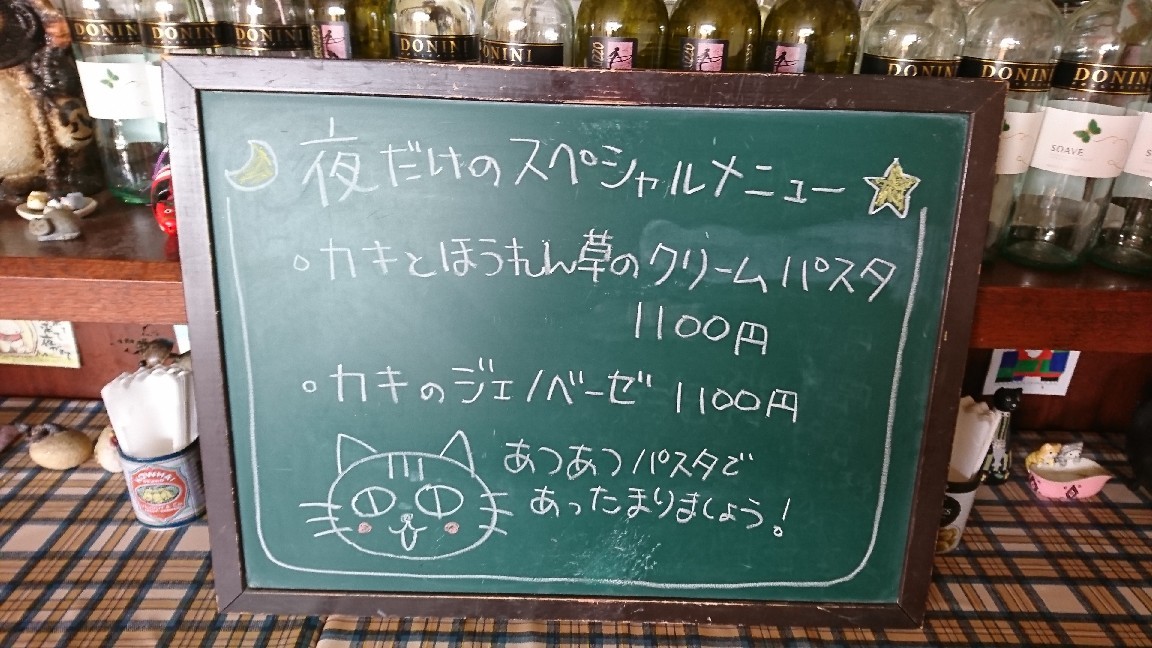 DONINI DONINI DONINI DONINI DONINI DONINI DONINI DONINI
SOAVE
夜だけのスペシャルメニュー
○カキとほうれん草のクリームパスタ
1100円
○カキのジェノベーゼ 1100円
あつあつパスタで
あったまりましょう!